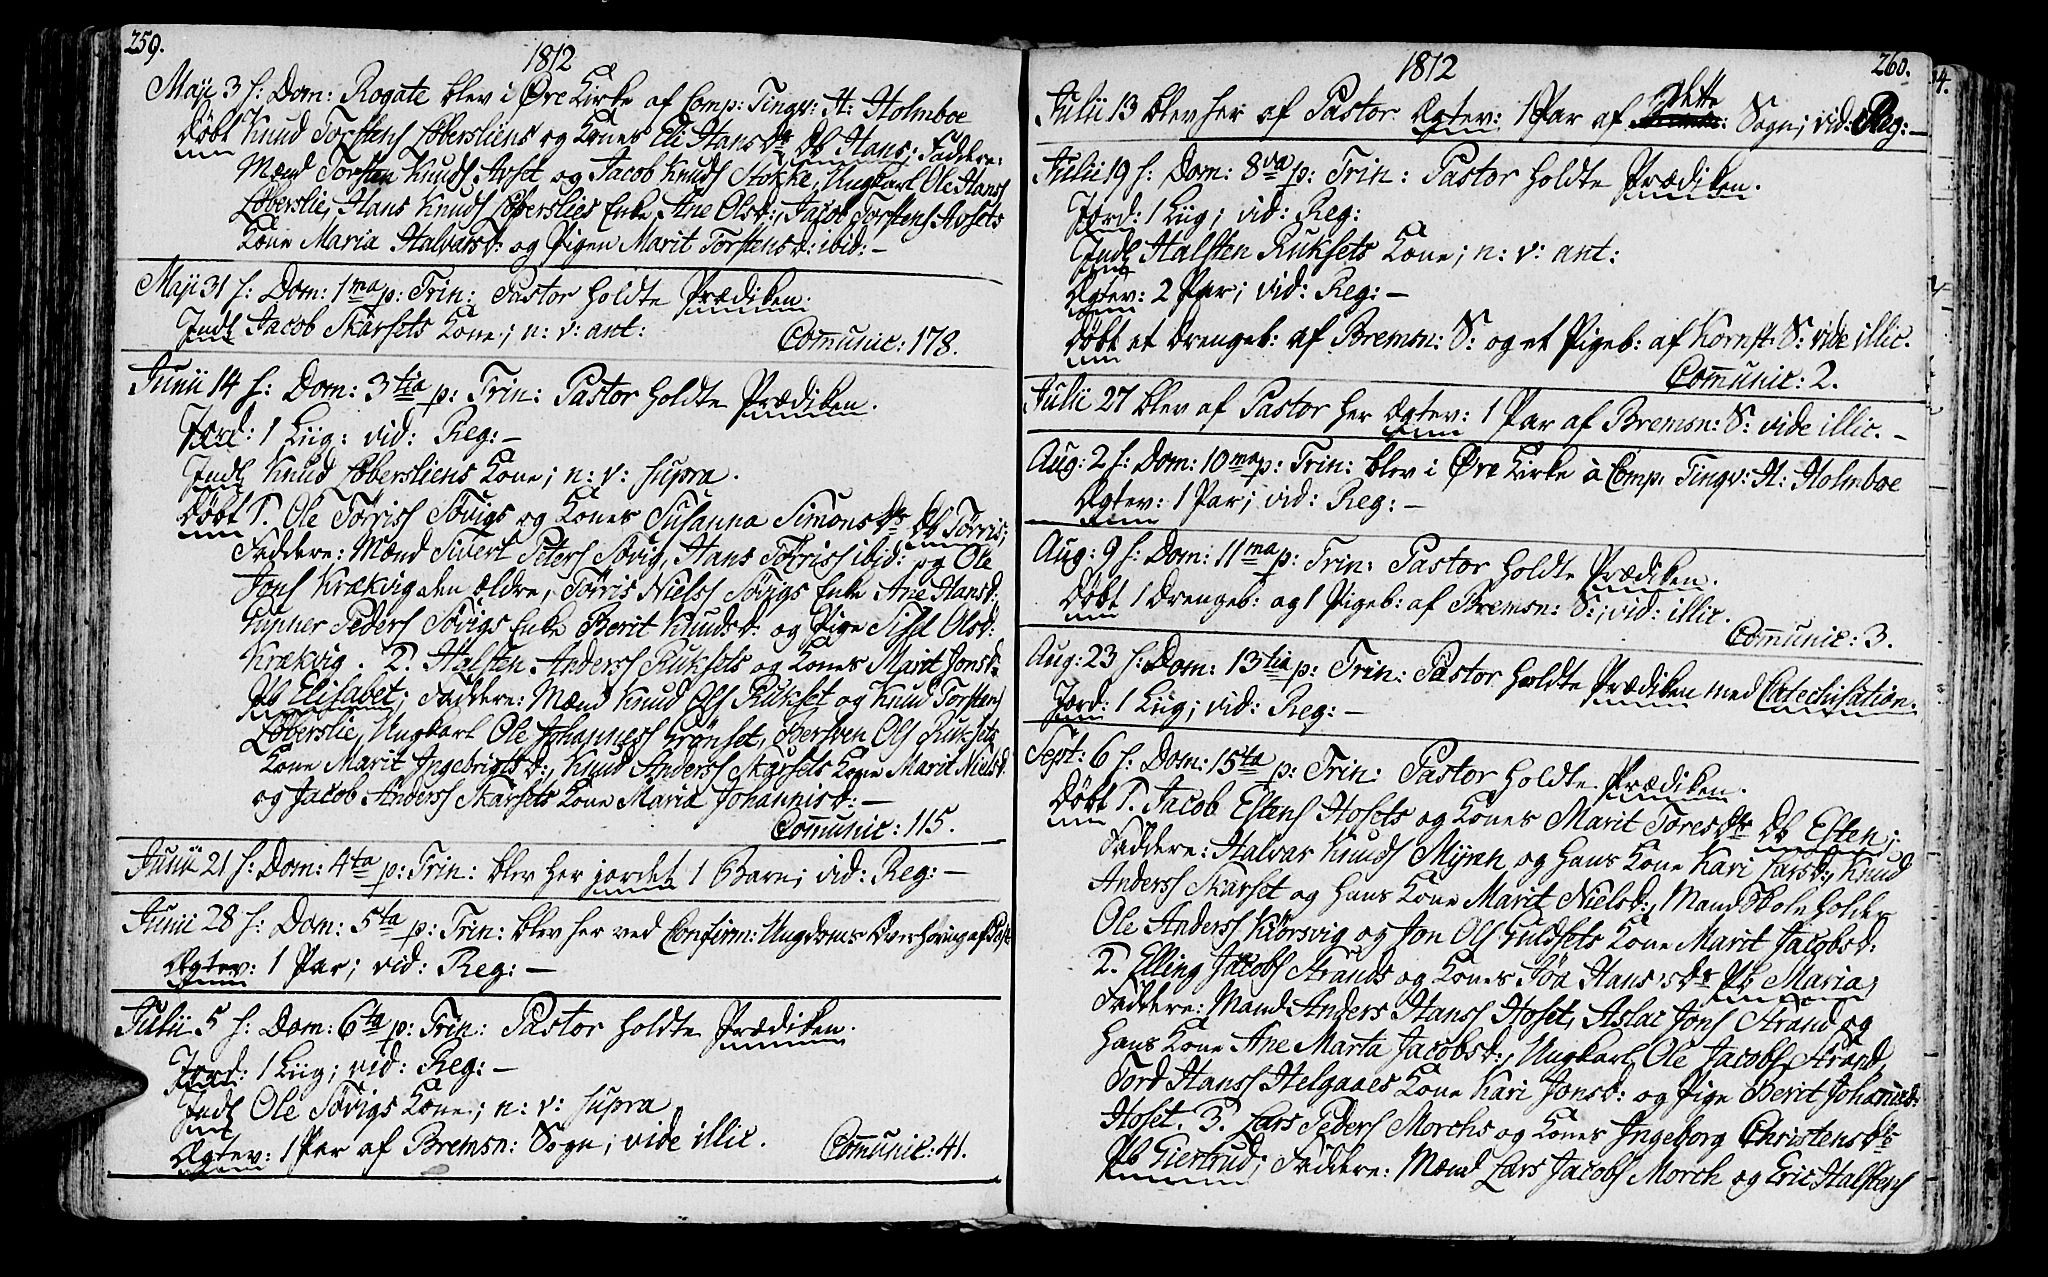 259.
1812
Maji 3 f: Dom: Rogate blev i Øre Kirke af Comp: Tingv: H: Holmboe
Døbt Knud Torstens Løbersliens og Kones Eli Hansdr Db Hans; Faddere:
Mænd Torsten Knuds Arset og Jacob Knuds Stokke, Ungkarl Ole Hans
Løberslie, Hans Knuds Løberslies Enke Ane Olsd:, Jacob Torstens Arsets
Kone Maria Halvarsd: og Pigen Marit Torstensd: ibid: –
Maji 31 f: Dom: 1ma p: Trin: Pastor holdte Prædiken.
Indl Jacob Skarsets Kone; n: v: ant:
Comunic: 178.
Junii 14 f: Dom: 3tia p: Trin: Pastor holdte Prædiken.
Jord: 1 Liig: vid: Reg: –
Indl Knud Løbersliens Kone; n: v: supra.
Døbt 1. Ole Torriss Tøvigs og Kones Susanna Simonsdr Db Tørris;
Faddere: Mænd Sivert Peters Tøvig, Hans Tørriss ibid: og Ole
Jons Krækvig den ældre, Tørris Niels Tøvigs Enke Ane Hansd:
Gunner Peders Tøvigs Enke Berit Knudsd: og Pige Sisel Olsd:
Krækvig. 2. Halsten Anderss Ruksets og Kones Marit Jonsd:
Pb Elisabet; Faddere: Mænd Knud Ols Rukset og Knud Torstens
Løberslie, Ungkarl Ole Johanness Grønset, Bersven Ols Ruksets
Kone Marit Ingebrigtsd:, Knud Anderss Skarsets Kone Marit Nielsd:
og Jacob Anderss Skarsets Kone Maria Johannisd: –
Comunic: 115.
Junii 21 f: Dom: 4ta p: Trin: blev her jordet 1 Barn; vid: Reg: –
Junii 28 f: Dom: 5ta p: Trin: blev her ved Confirm: Ungdoms Overhøring af Past:
Ægtev: 1 Par; vid: Reg: –
Julii 5 f: Dom: 6ta p: Trin: Pastor holdte Prædiken.
Jord: 1 Liig; vid: Reg: –
Indl Ole Tøvigs Kone; n: v: supra
Ægtev: 1 Par af Bremsn: Sogn; vide illic.
Comunic: 41.
260.
1812
Julii 13 blev her af Pastor Ægtev: 1 Par af dette Sogn; vid: Reg: –
Julii 19 f: Dom: 8va p: Trin: Pastor holdte Prædiken.
Jord: 1 Liig; vid: Reg:
Indl Halsten Ruksets Kone; n: v: ant:
Ægtev: 2 Par; vid: Reg: –
Døbt et Drengeb: af Bremsn: S: og et Pigeb: af Kornst: S: vide illic.
Comunic: 2.
Julii 27 blev af Pastor her Ægtev: 1 Par af Bremsn: S: vide illic. –
Aug: 2 f: Dom: 10ma p: Trin: blev i Øre Kirke à Comp: Tingv: H: Holmboe
Ægtev: 1 Par; vid: Reg: –
Aug: 9 f: Dom: 11ma p: Trin: Pastor holdte Prædiken.
Døbt 1 Drengeb: og 1 Pigeb: af Bremsn: S:, vid: illic.
Comunic: 3.
Aug: 23 f: Dom: 13tia p: Trin: Pastor holdte Prædiken med Catechisation.
Jord: 1 Liig; vid: Reg: –
Sept: 6 f: Dom: 15ta p: Trin: Pastor holdte Prædiken.
Døbt 1. Jacob Estens Hosets og Kones Marit Toresdr Db Esten;
Faddere: Halvar Knuds Mynh og Hans Kone Kari Larsd:, Knud
Anderss Skarset og hans Kone Marit Nielsd:, Mand Skoleholder
Ole Anderss Kiørsvig og Jon Ols Guldsets Kone Marit Jacobsd:
2. Elling Jacobs Strands og Kones Søa Hans:dr Pb Maria,
Faddere: Mand Anders Hanss Hoset, Aslac Jons Strand og
hans Kone Ane Marta Jacobsd:, Ungkarl Ole Jacobs Strand,
Tord Hanss Helgaaes Kone Kari Jonsd: og Pige Berit Johannisd:
Hoset. 3. Lars Peders Morchs og Kones Ingeborg Christensdr
Pb Giertrud; Faddere: Mænd Lars Jacobs Morch og Eric Halstens